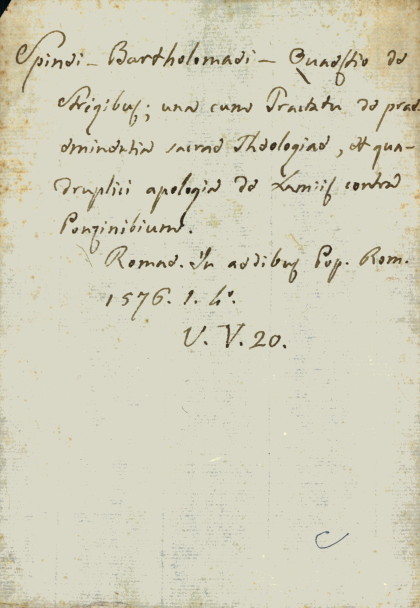 Spinei – Bartholomaei – Quaestio de
Strigibus; una cum Tractatu de prae
eminentia sacrae Theologiae, et qua-
druplici apologia de Lamiis contra
Ponzinibium.
Romae. In aedibus Pop. Rom.
1576. 1. 4°.
V. V. 20.